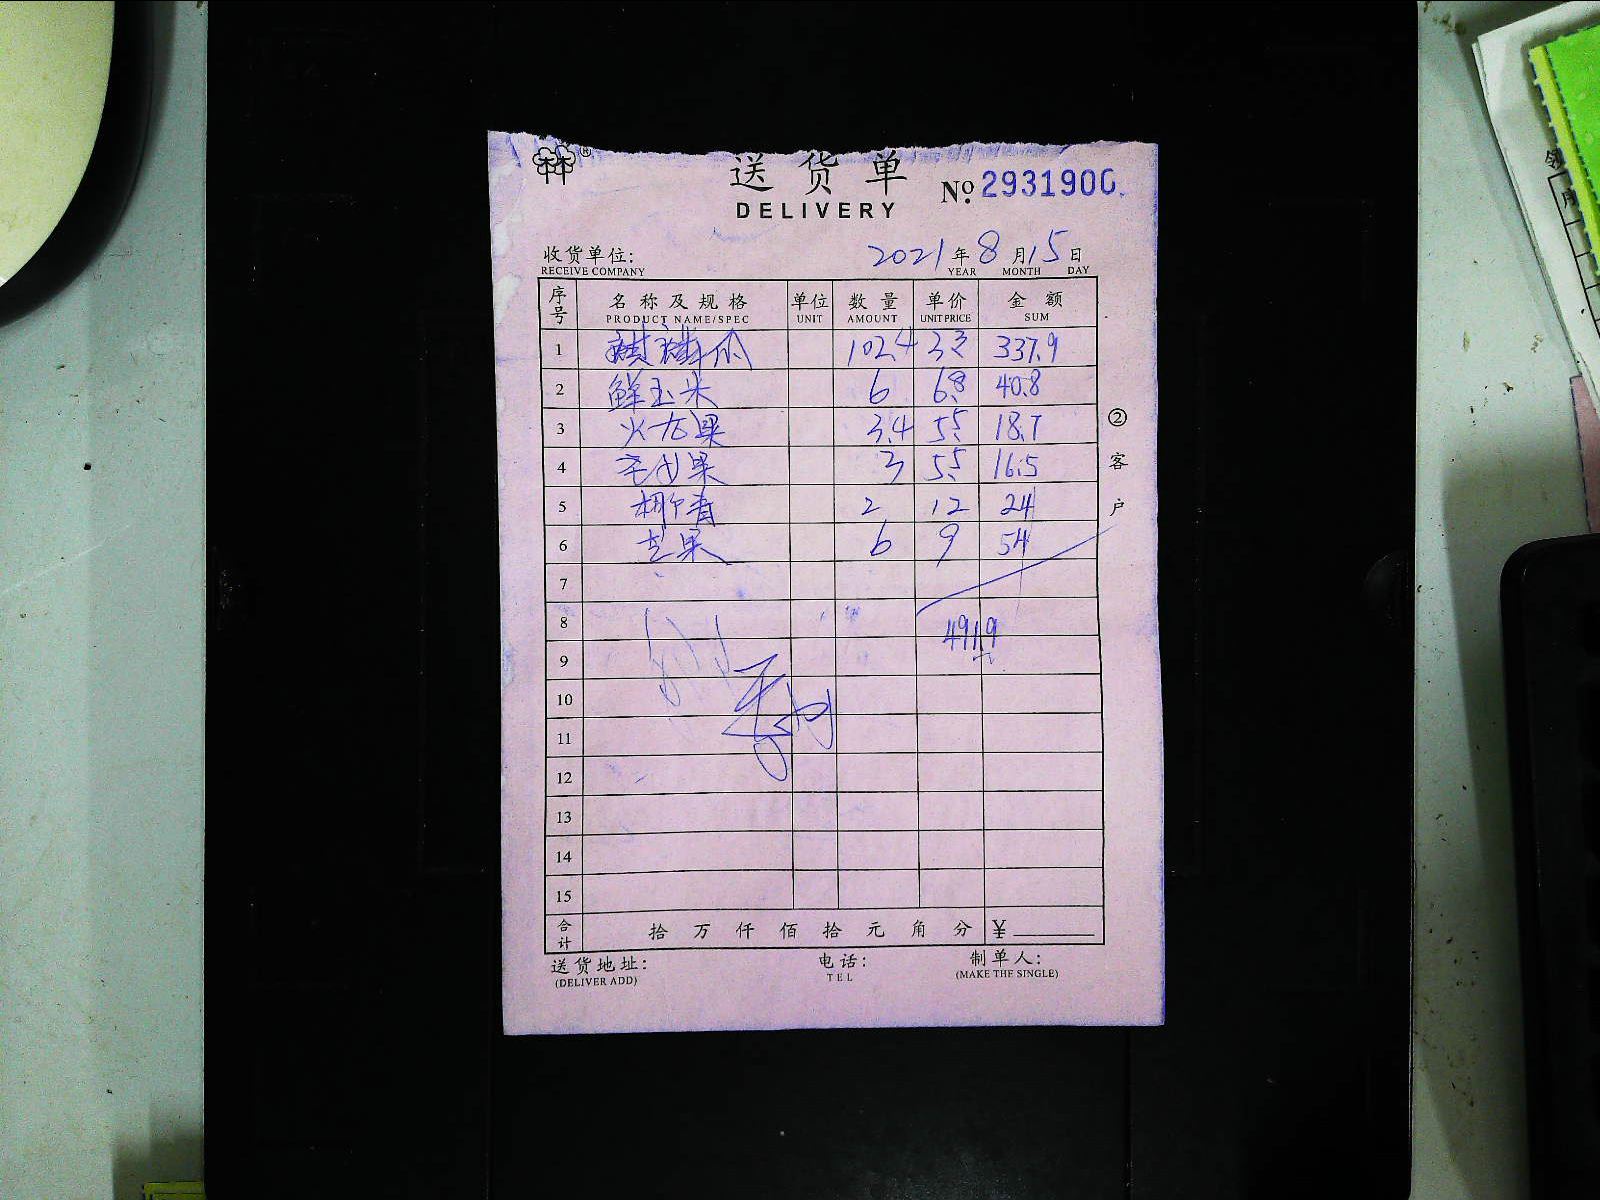 送货单
DELIVERY
№ 2931900
收货单位: 2021年8月15日
RECEIVE COMPANY YEAR MONTH DAY
序号 名称及规格 单位 数量 单价 金额
PRODUCT NAME/SPEC UNIT AMOUNT UNIT PRICE SUM
1 麒麟瓜 102.4 3.3 337.9
2 鲜玉米 6 6.8 40.8
3 火龙果 3.4 5.5 18.7
4 3 5.5 16.5
5 椰青 2 12 24
6 芒果 6 9 54
7
8
491.9元
9
10
11
12
13
14
15
合计 拾万仟佰拾元角分 ¥
送货地址: 电话: 制单人:
(DELIVER ADD) TEL (MAKE THE SINGLE)
②客户